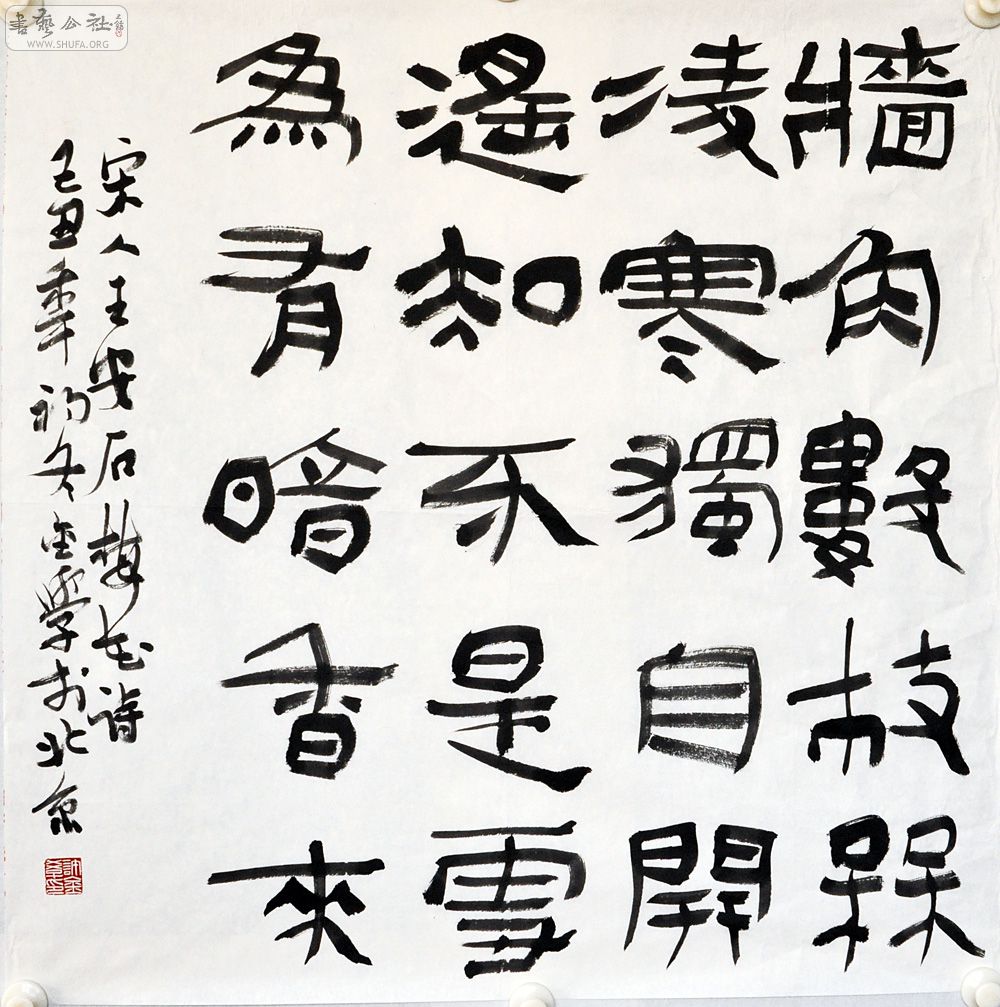 牆角數枝槑
凌寒獨自開
遙知不是雪
為有暗香來
宋人王安石梅花詩
己丑年初冬金學於北京
書藝公社
WWW.SHUFA.ORG